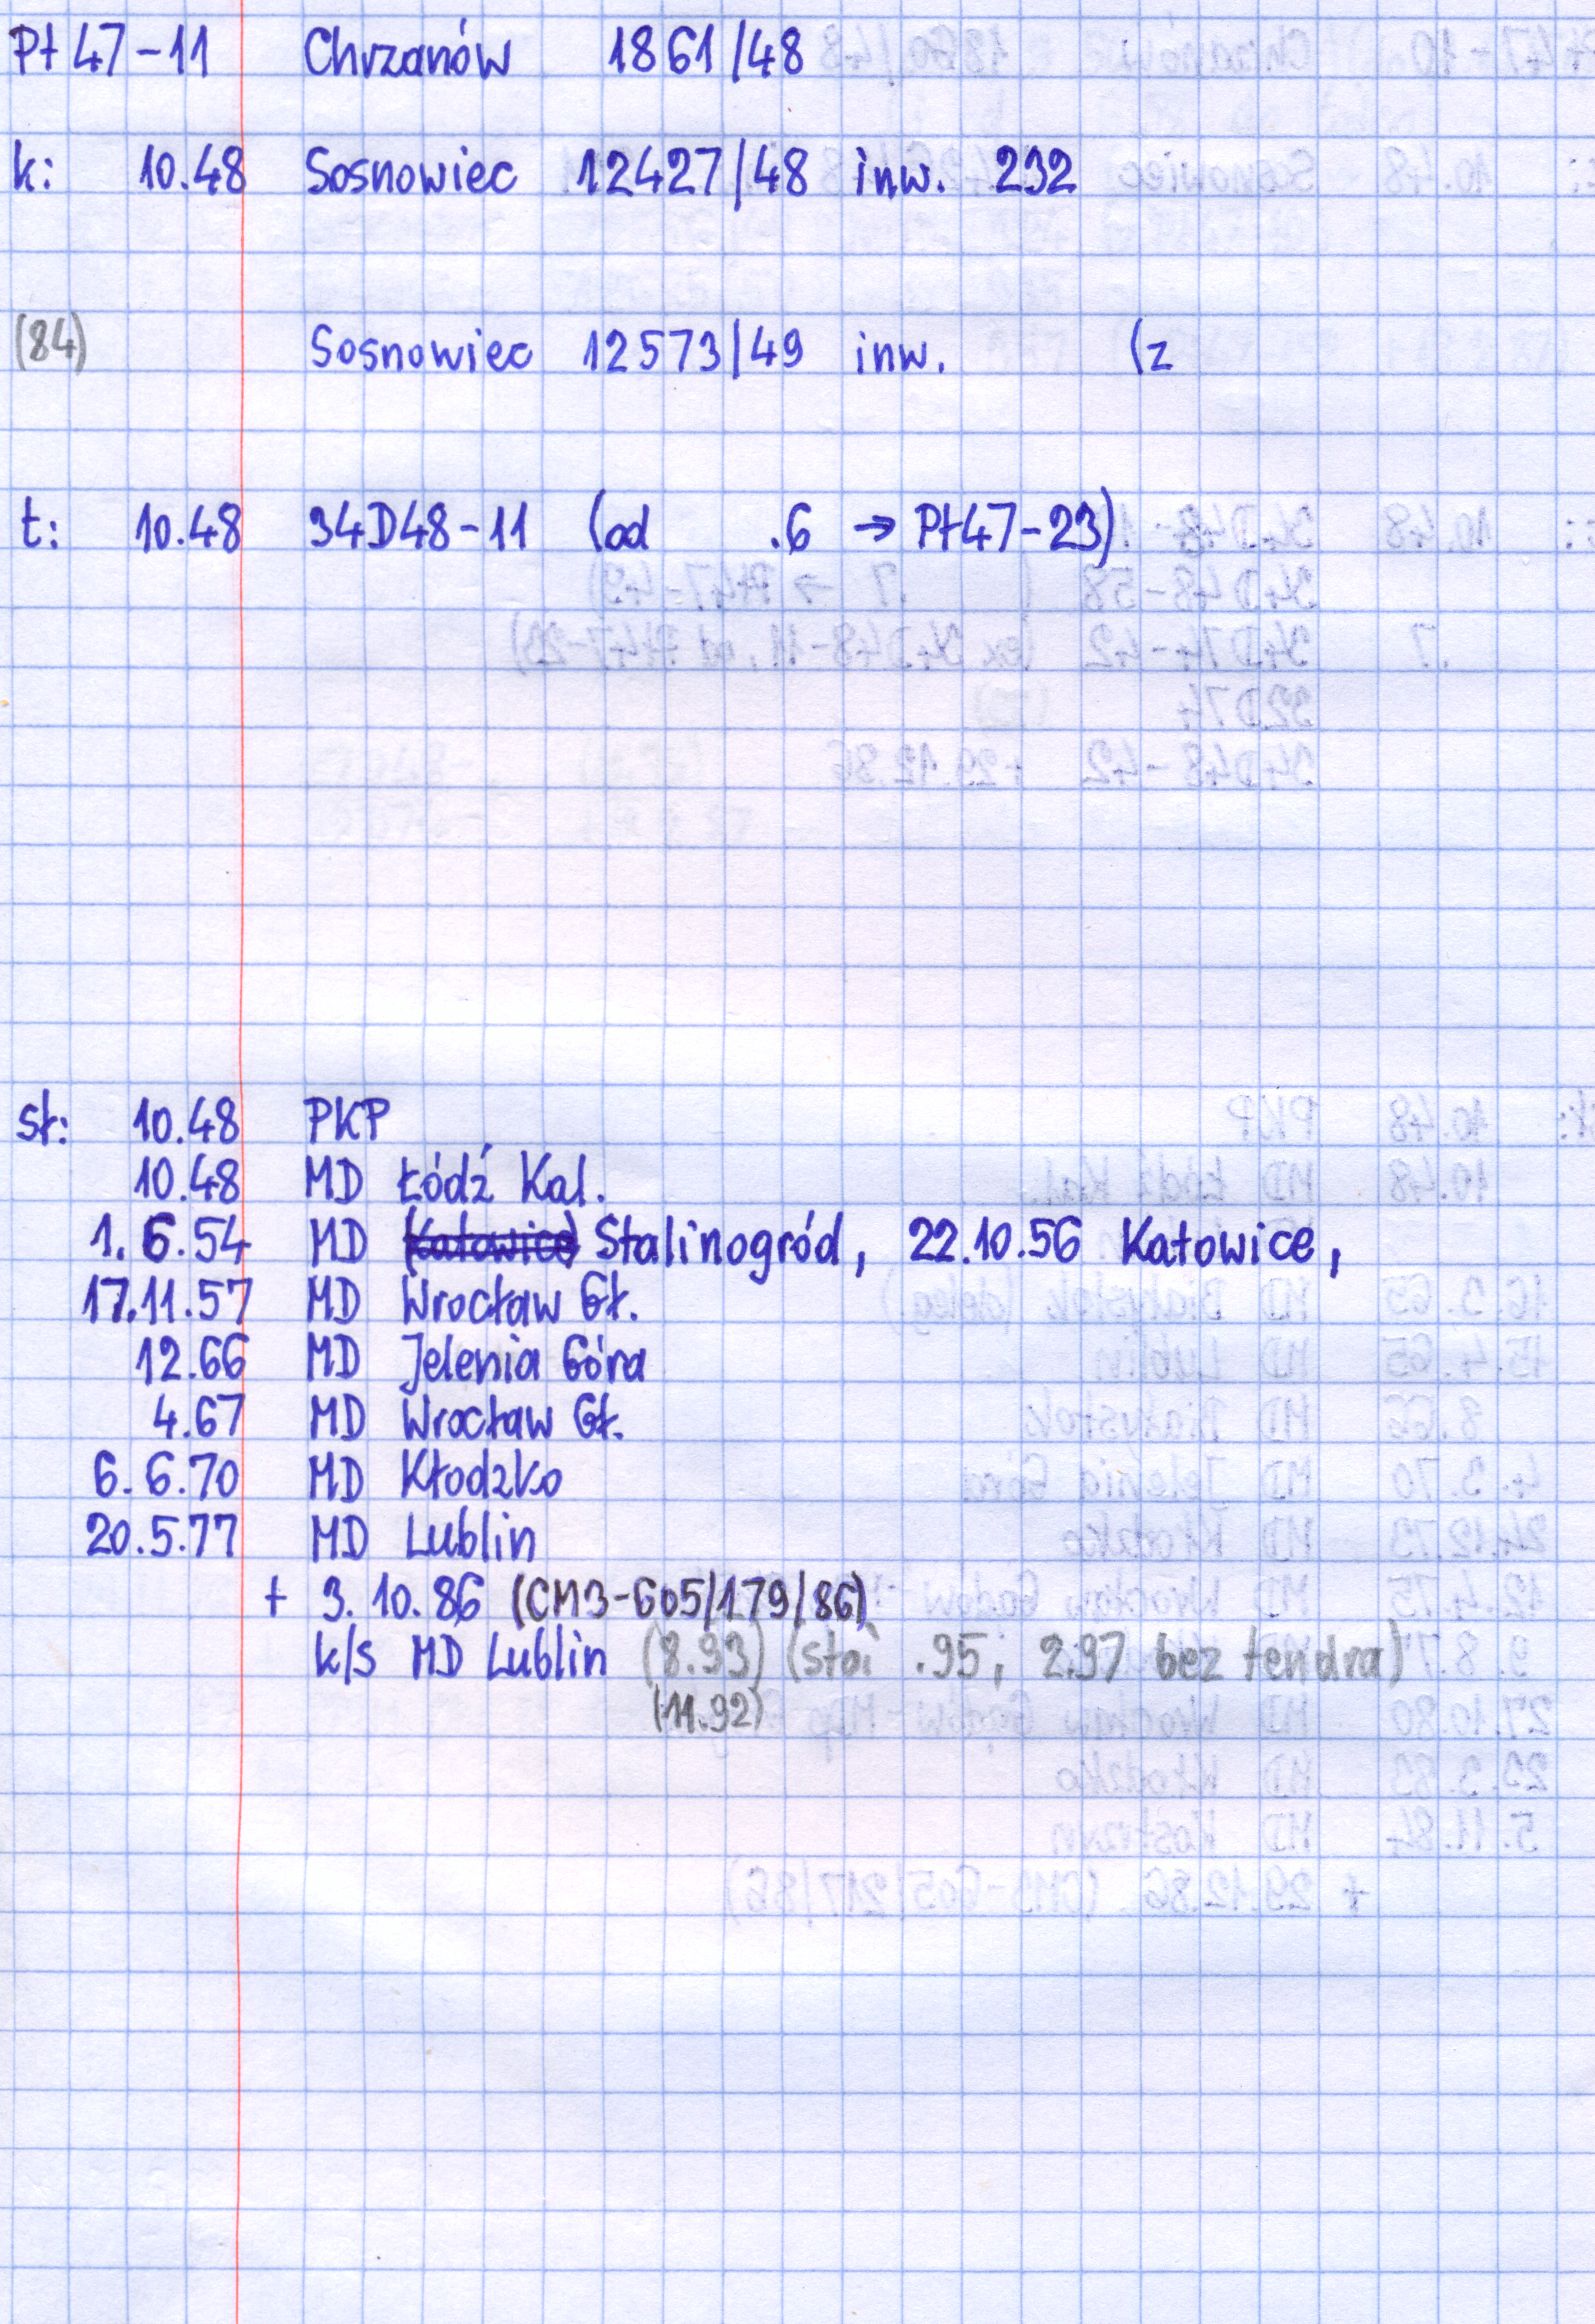 Pt 47-11 Chrzanów 1861/48
k: 10.48 Sosnowiec 12427/48 inw. 232
(84) Sosnowiec 12573/49 inw. (z
t: 10.48 34D48-11 (od .6 → Pt47-23)
st: 10.48 PKP
10.48 MD Łódź Kal.
1.6.54 MD (Katowice) Stalinogród, 22.10.56 Katowice,
17.11.57 MD Wrocław Gł.
12.66 MD Jelenia Góra
4.67 MD Wrocław Gł.
6.6.70 MD Kłodzko
20.5.77 MD Lublin
+ 3.10.86 (CM3-605/179/86)
k/s MD Lublin (8.93) (stoi .95, 2.97 bez tendra)
(11.92)